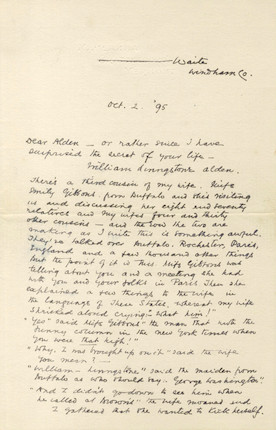 Waite
Windham Co.
Oct. 2. '95
Dear Alden — or rather since I have
surprised the secret of your life —
William Livingstone Alden.
There's a third cousin of my wife, Miss
Emily Gibbons from Buffalo and she's visiting
us and discussing her eight and seventy
relatives and my wife's four and thirty
other cousins — and the row the two are
making as I write this is something awful.
They've talked over Buffalo, Rochester, Paris,
England and a few thousand other things
but the point of it is this. Miss Gibbons was
telling about you and a meeting she had
with you and your folks in Paris. Then she
explained a few things to the wife in
the language of these States, whereat my wife
shrieked aloud crying:- "What him!"
"Yes" said Miss Gibbons "the man that with the
funny column in the New York Times when
you were that high."
"Why, I was brought up on it" said the wife
you mean! —
"William — Livingstone" said the maiden from
Buffalo as who should say:- George Washington"
"And I didn't go down to see him when
he called at Brown's" the wife moaned and
I gathered that she wanted to kick herself.